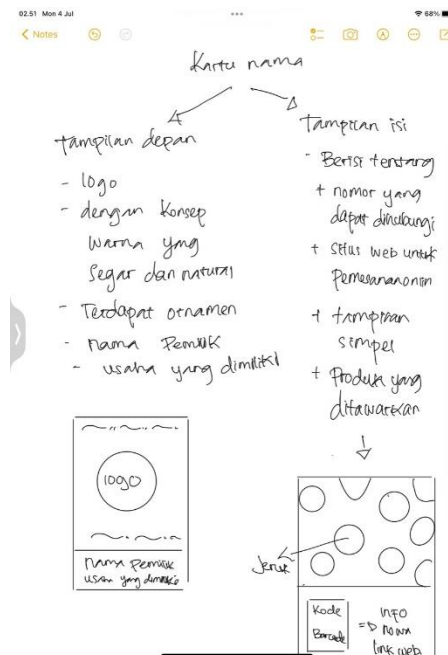 02.51 Mon 4 Jul
68%
Notes
Kartu nama
tampilan depan
- logo
- dengan Konsep
warna yang
Segar dan natural
- Terdapat ornamen
- nama Pemilik
- usaha yang dimiliki
logo
nama Pemilik
usaha yang dimiliki
Tampilan isi
- Berisi tentang
+ nomor yang
dapat dihubungi
+ situs web untuk
Pemesanan
+ tampilan
simpel
+ Produk yang
ditawarkan
Jeruk
Kode
Barcode
info
nowa
link web